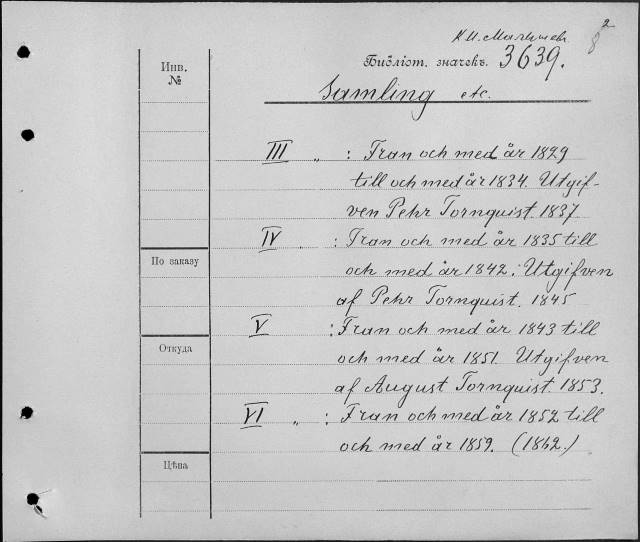 К.И. Малышев
2
8
Инв.
№
Библіот. значекъ. 3639.
Samling etc.
III „ : Fran och med år 1829
till och med år 1834. Utgif-
ven Pehr Tornquist. 1837
IV „ : Fran och med år 1835 till
och med år 1842. Utgifven
По заказу
af Pehr Tornquist. 1845
V : Fran och med år 1843 till
Откуда
och med år 1851. Utgifven
af August Tornquist. 1853.
VI „ : Fran och med år 1852 till
och med år 1859. (1862.)
Цѣна